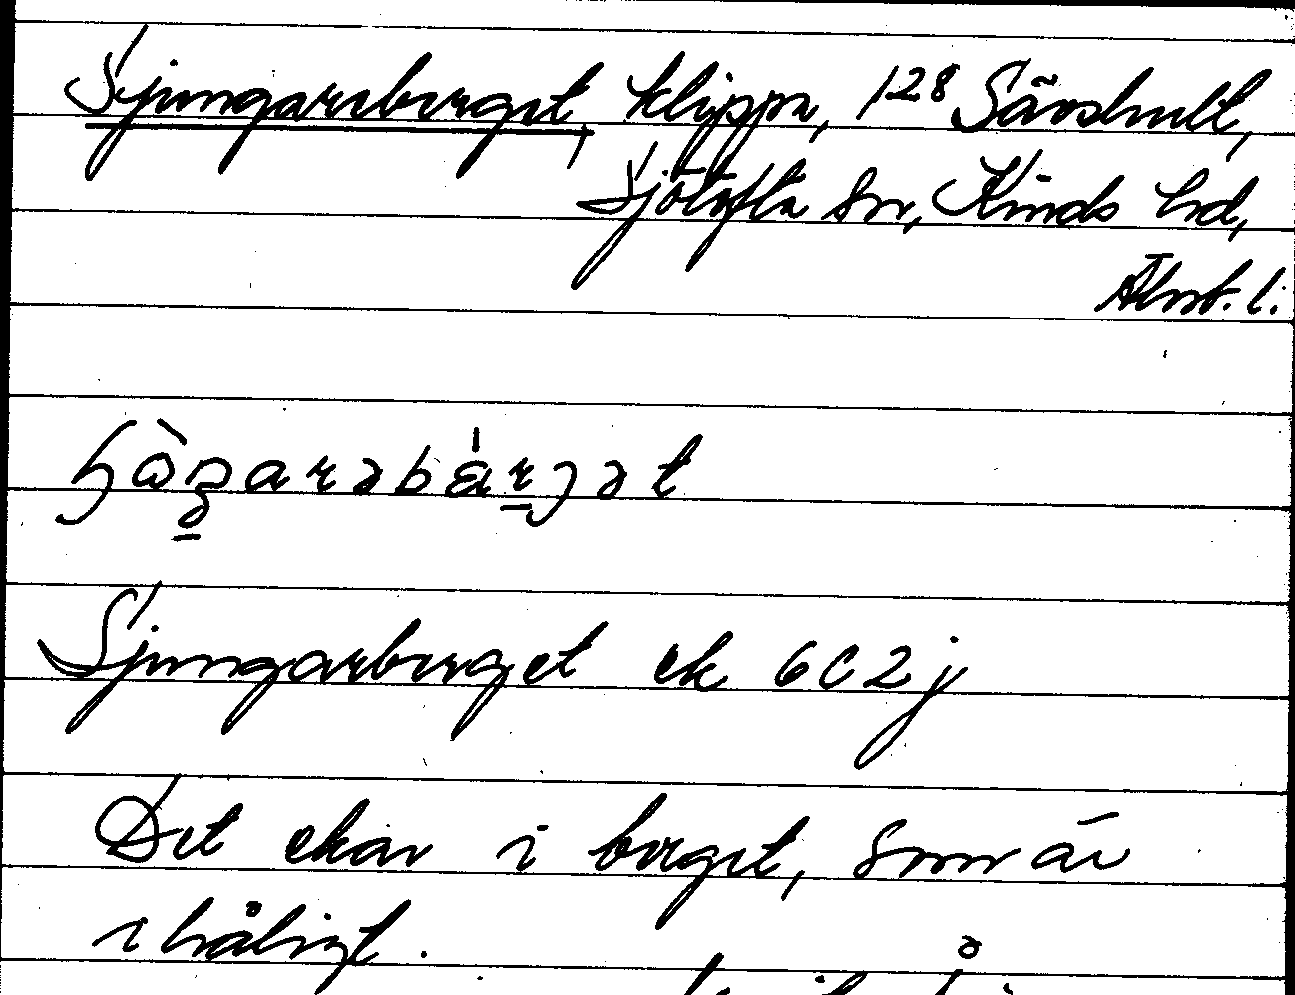 Sjungareberget, klippa, 128 Sävshult,
Sjötofta sn, Kinds hd,
Älvsb. l.
Sjungarberget ek 6C2j
Det ekar i berget, som är
ihåligt.